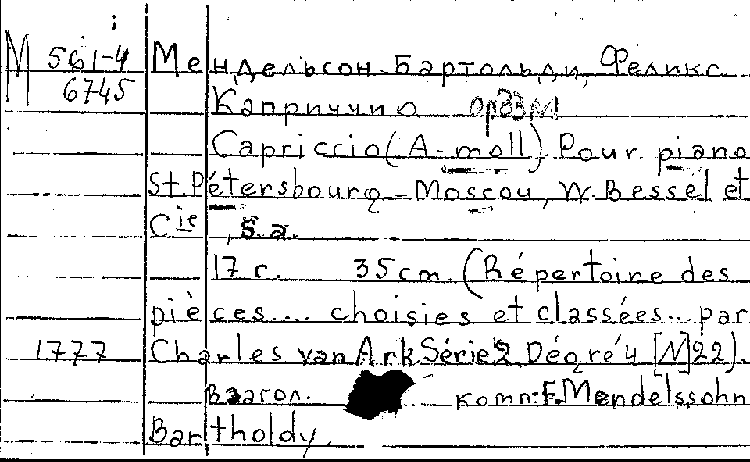 М 561-4
6745
Мендельсон-Бартольди, Феликс
Каприччио op33№1
Capriccio (A-moll) Pour piano
St. Pétersbourg-Moscou, W. Bessel et
Cie, s.a.
17 с. 35 см. (Répertoire des
pièces.... choisies et classées.. par
1777 Charles van Ark Série 2 Dégré 4 [N 22]).
В загол. комп: F. Mendelssohn
Bartholdy.